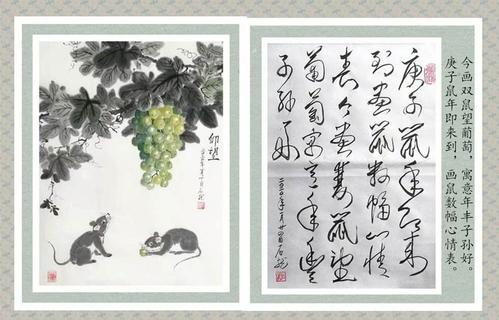 仰望
庚子鼠年即来
到画鼠数幅心情
表今画双鼠望
葡萄寓意年丰
子孙好
今画双鼠望葡萄，寓意年丰子孙好。
庚子鼠年即来到，画鼠数幅心情表。